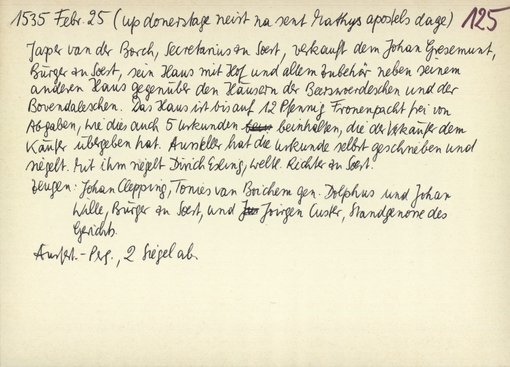 1535 Febr. 25 (up donerstage neist na sent Mathys apostels dage) 125
Jasper van der Borch, Secretarius zu Soest, verkauft dem Johan Gresemunt,
Bürger zu Soest, sein Haus mit Hof und allem Zubehör neben seinem
anderen Haus gegenüber den Häusern der Beerswordeschen und der
Bovendaleschen. Das Haus ist bis auf 12 Pfennig Fronenpacht frei von
Abgaben, wie dies auch 5 Urkunden beinhalten, die der Verkäufer dem
Käufer übergeben hat. Aussteller hat die Urkunde selbst geschrieben und
siegelt. Mit ihm siegelt Dirich Esling, weltl. Richter zu Soest.
Zeugen: Johan Clepping, Tonies van Boichem gen. Dolphus und Johan
Wille, Bürger zu Soest, und Joirgen Custer, Standgenosse des
Gerichts.
Ausfert. - Perg., 2 Siegel ab.